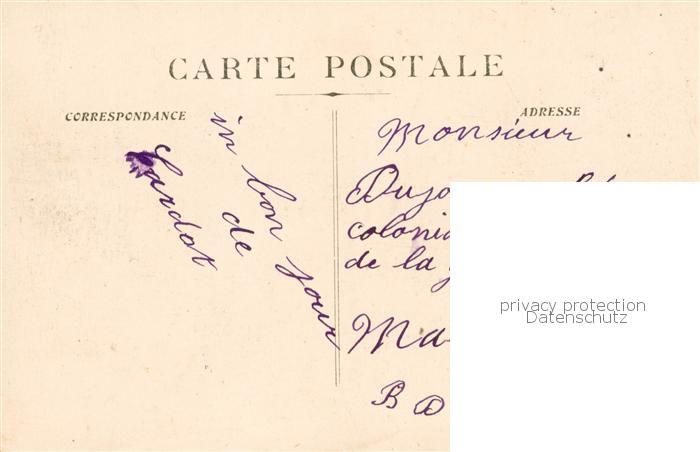 CARTE POSTALE
CORRESPONDANCE
ADRESSE
in bon jour
de
Sardat
Monsieur
Dujo
coloni
de la
Ma
B D
privacy protection
Datenschutz